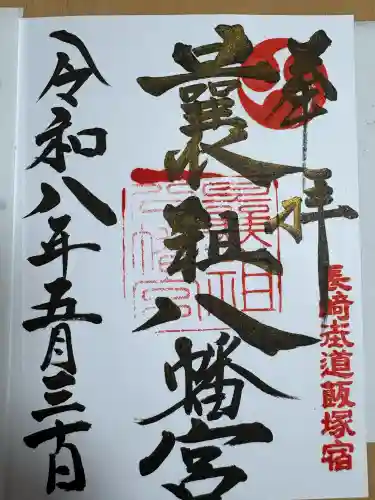 奉拝
長崎街道飯塚宿
曩祖八幡宮
令和八年五月三十日